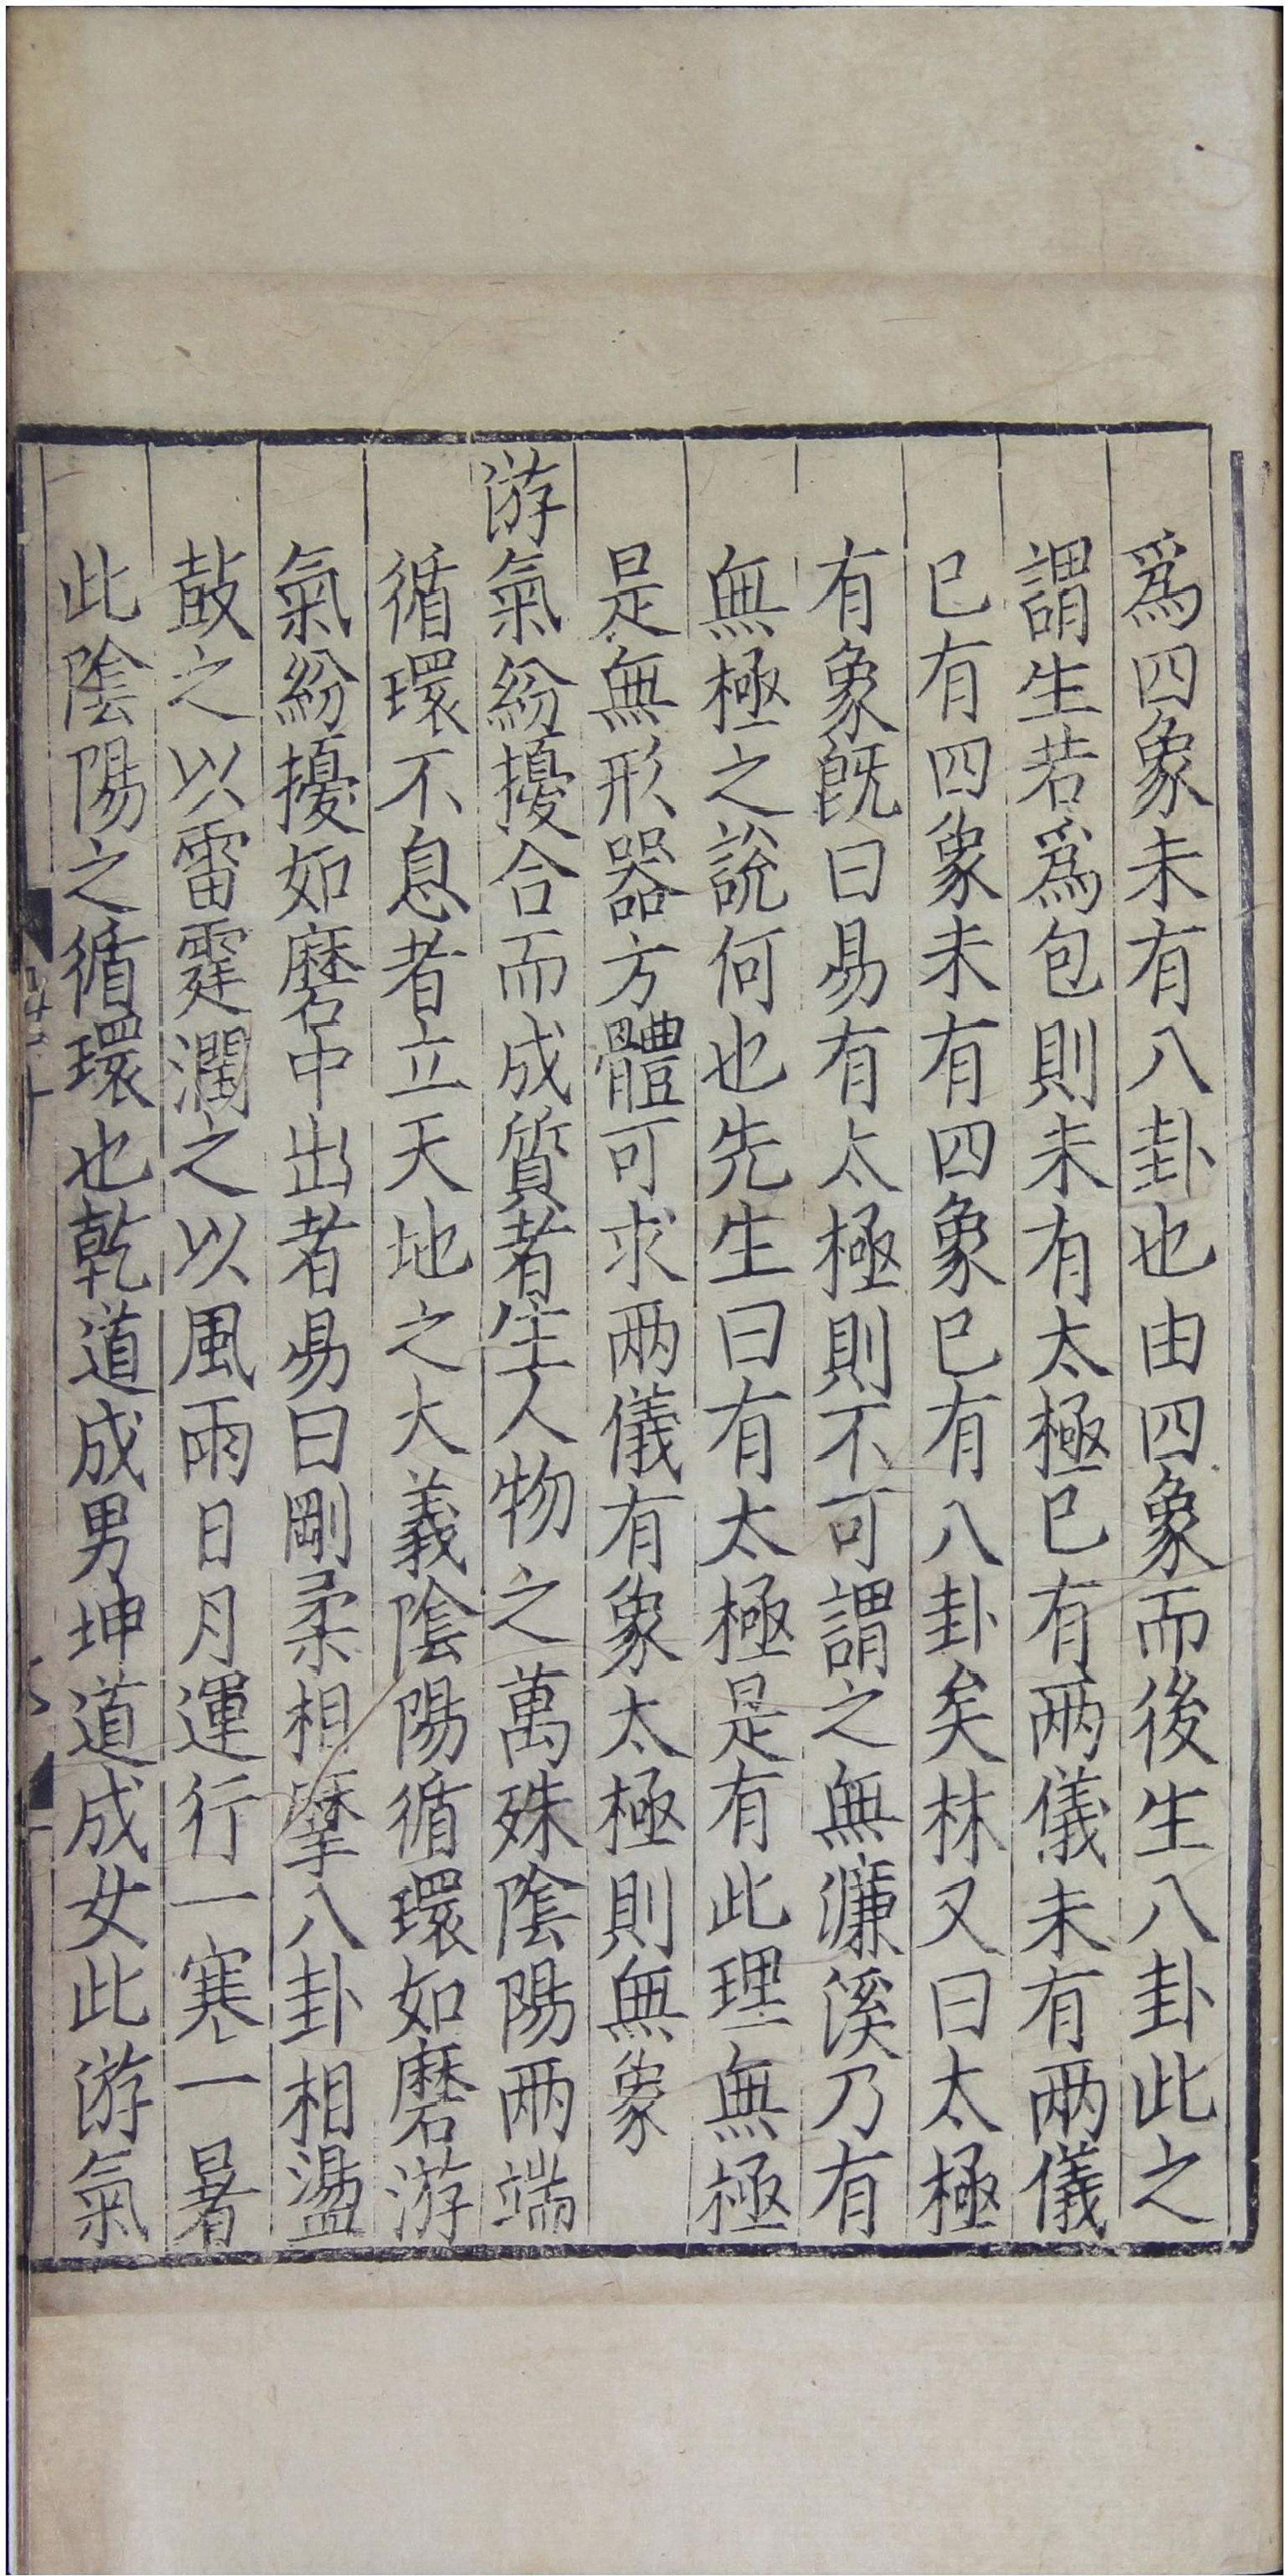 爲四象未有八卦也由四象而後生八卦此之
謂生若爲包則未有太極已有兩儀未有兩儀
已有四象未有四象已有八卦矣林又曰太極
有象旣曰易有太極則不可謂之無濂溪乃有
無極之說何也先生曰有太極是有此理無極
是無形器方體可求兩儀有象太極則無象
游氣紛擾合而成質者生人物之萬殊陰陽兩端
循環不息者立天地之大義陰陽循環如磨游
氣紛擾如磨中出者易曰剛柔相摩八卦相盪
鼓之以雷霆潤之以風雨日月運行一寒一暑
此陰陽之循環也乾道成男坤道成女此游氣